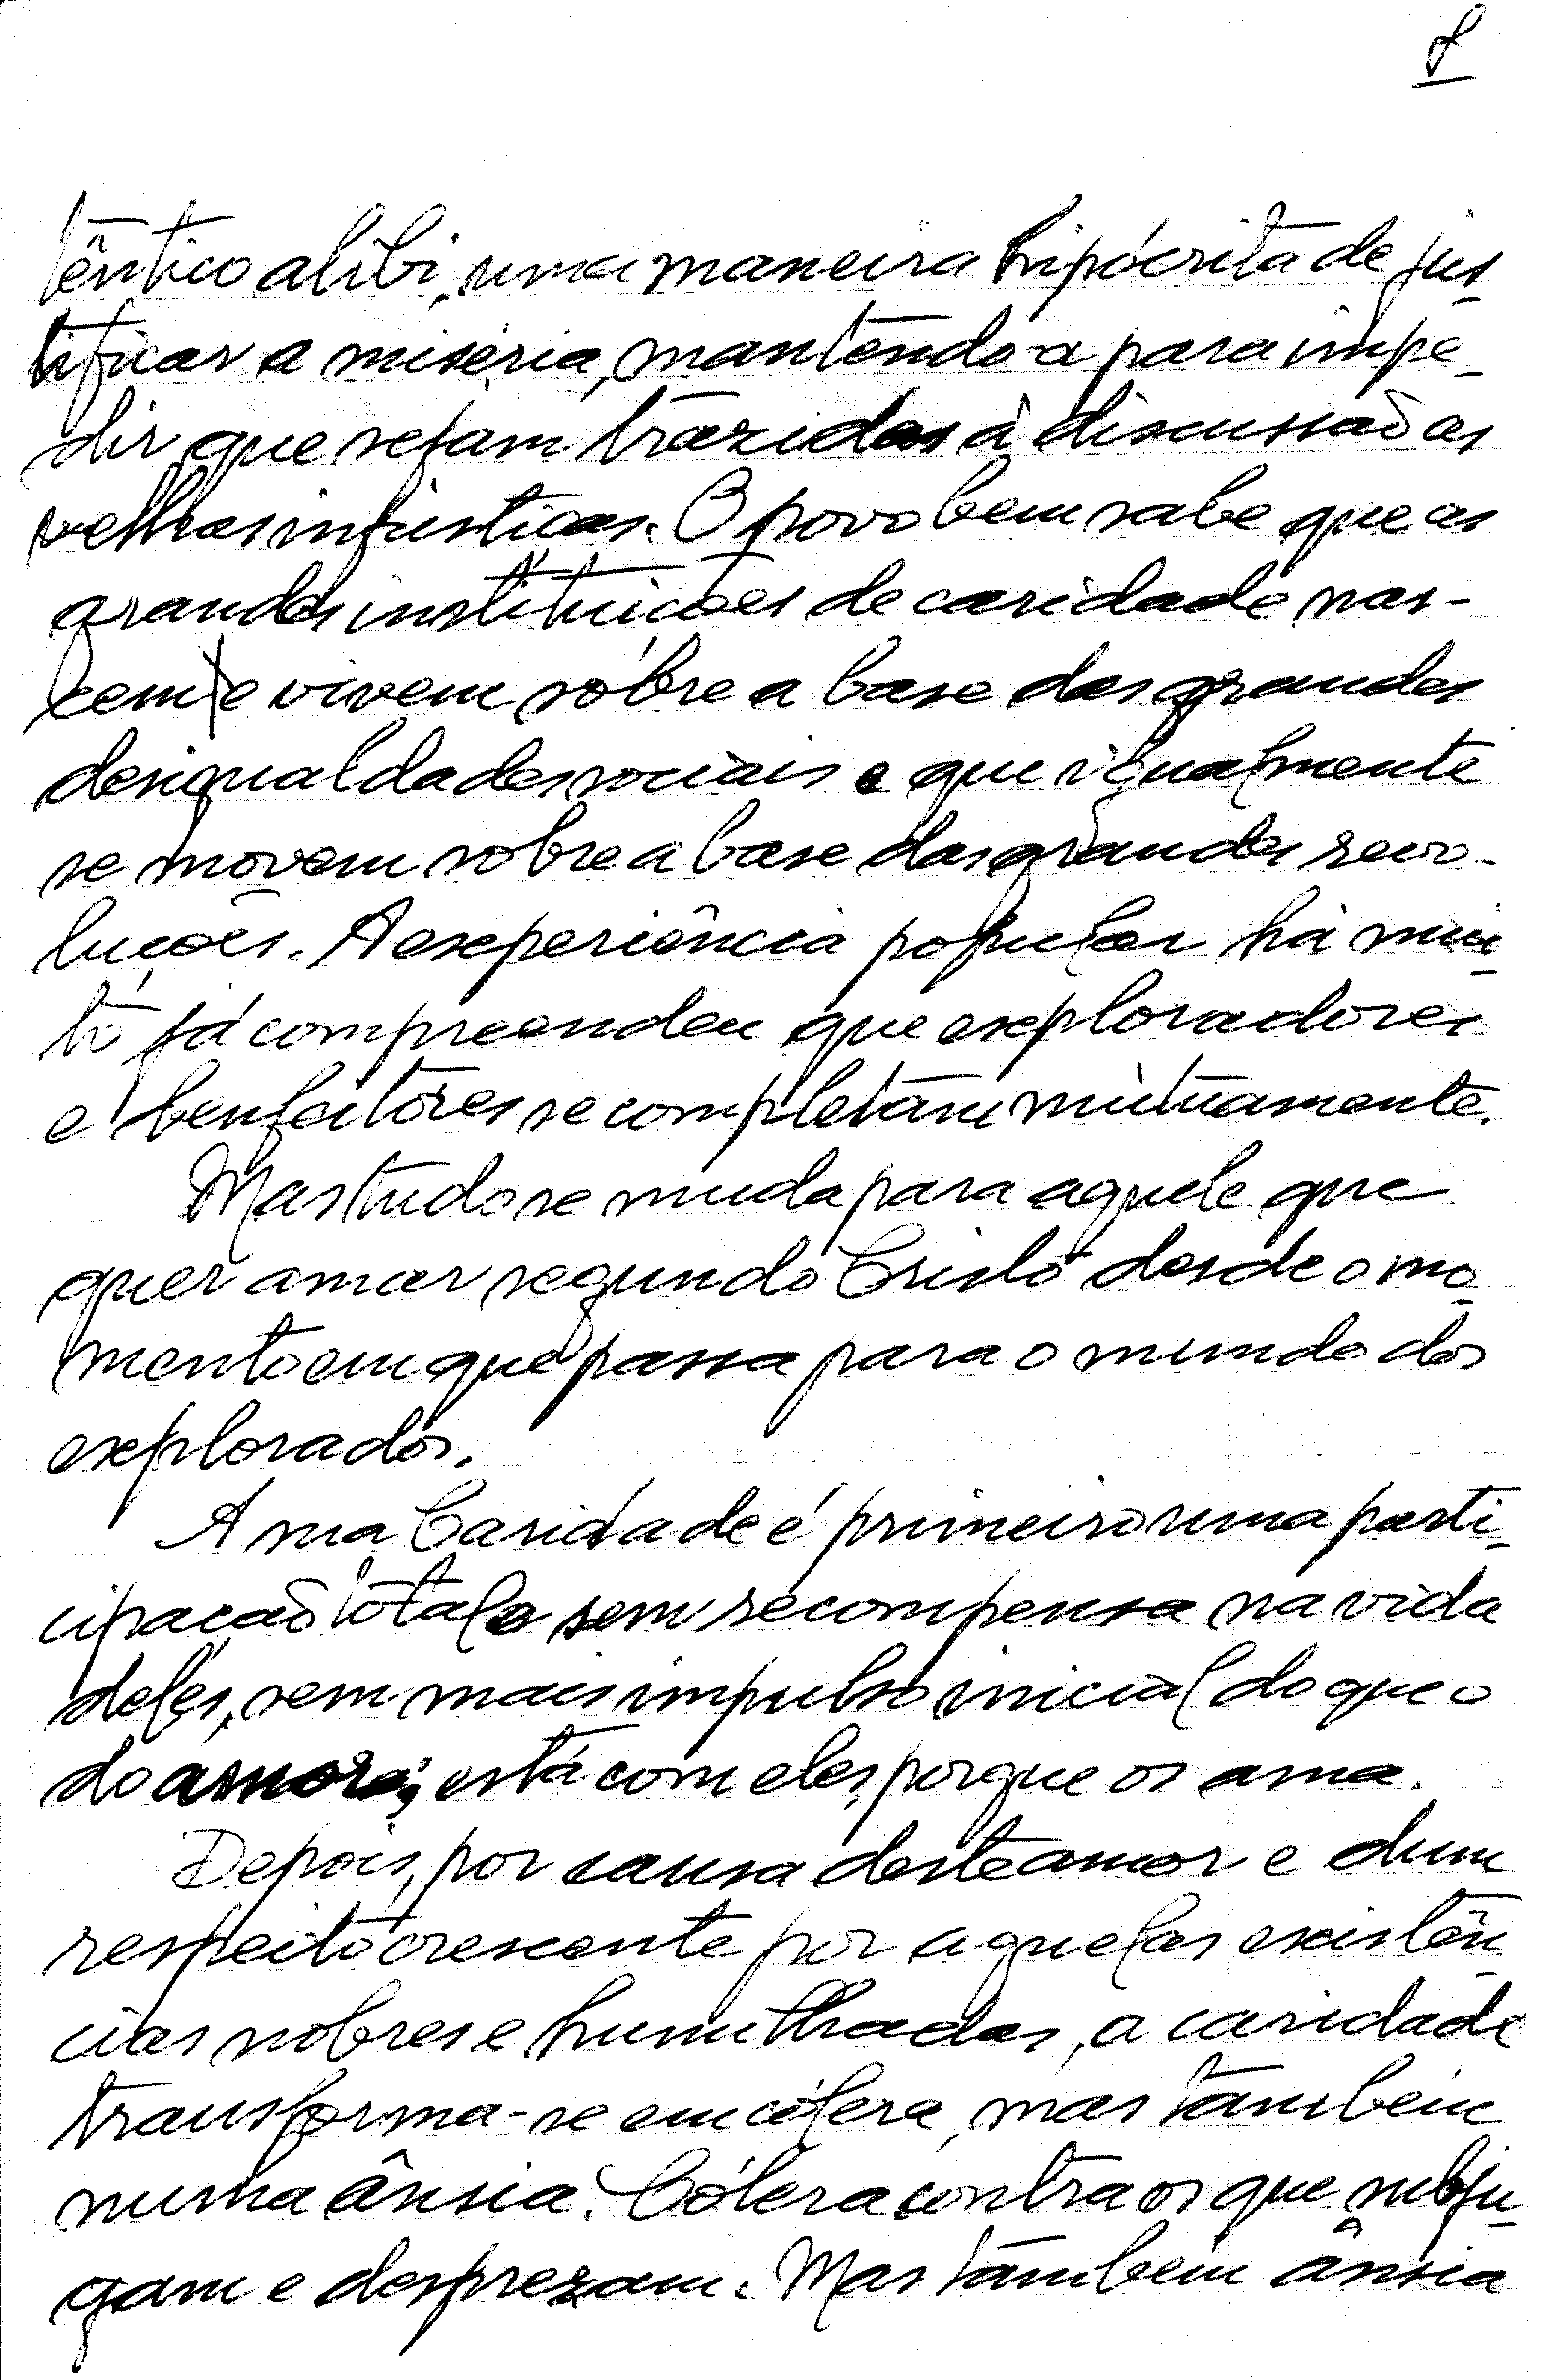 8
têntico alibi, uma maneira hipócrita de jus-
tificar a miséria, mantendo-a para impe-
dir que sejam trazidas à discussão as
velhas injustiças. O povo bem sabe que as
grandes instituições de caridade nas-
cem e vivem sôbre a base das grandes
desigualdades sociais e que igualmente
se movem sobre a base das grandes revo-
luções. A experiência popular há mui-
to já compreendeu que exploradores
e benfeitores se completam mùtuamente.
Mas tudo se muda para aquele que
quer amar segundo Cristo desde o mo-
mento em que passa para o mundo dos
explorados.
A sua Caridade é primeiro uma parti-
cipação total e sem recompensa na vida
deles, sem mais impulso inicial do que o
do amor; está com eles porque os ama.
Depois, por causa deste amor e dum
respeito crescente por aquelas existên-
cias nobres e humilhadas, a caridade
transforma-se em cólera, mas também
numa ânsia. Cólera contra os que subju-
gam e desprezam. Mas também ânsia